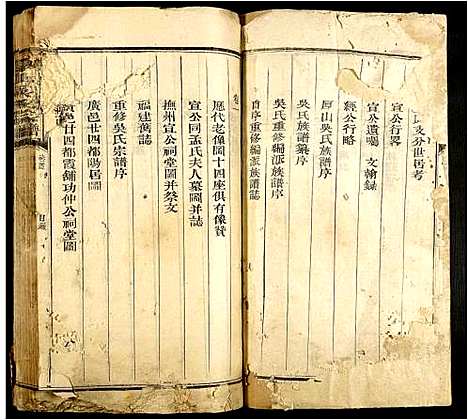 支分世居考
宣公行畧
宣公遺囑　文翰錄
經公行略
屏山吳氏族譜序
吳氏族譜纂序
吳氏重修編派族譜序
自序重修編派族譜誌
卷
歷代老像圖十四座俱有像贊
宣公同孟氏夫人墓圖并誌
撫州宣公祠堂圖并祭文
福建舊誌
重修吳氏宗譜序
廣邑廿四都陽居圖
廣邑廿四都霞舖功仲公祠堂圖
目錄